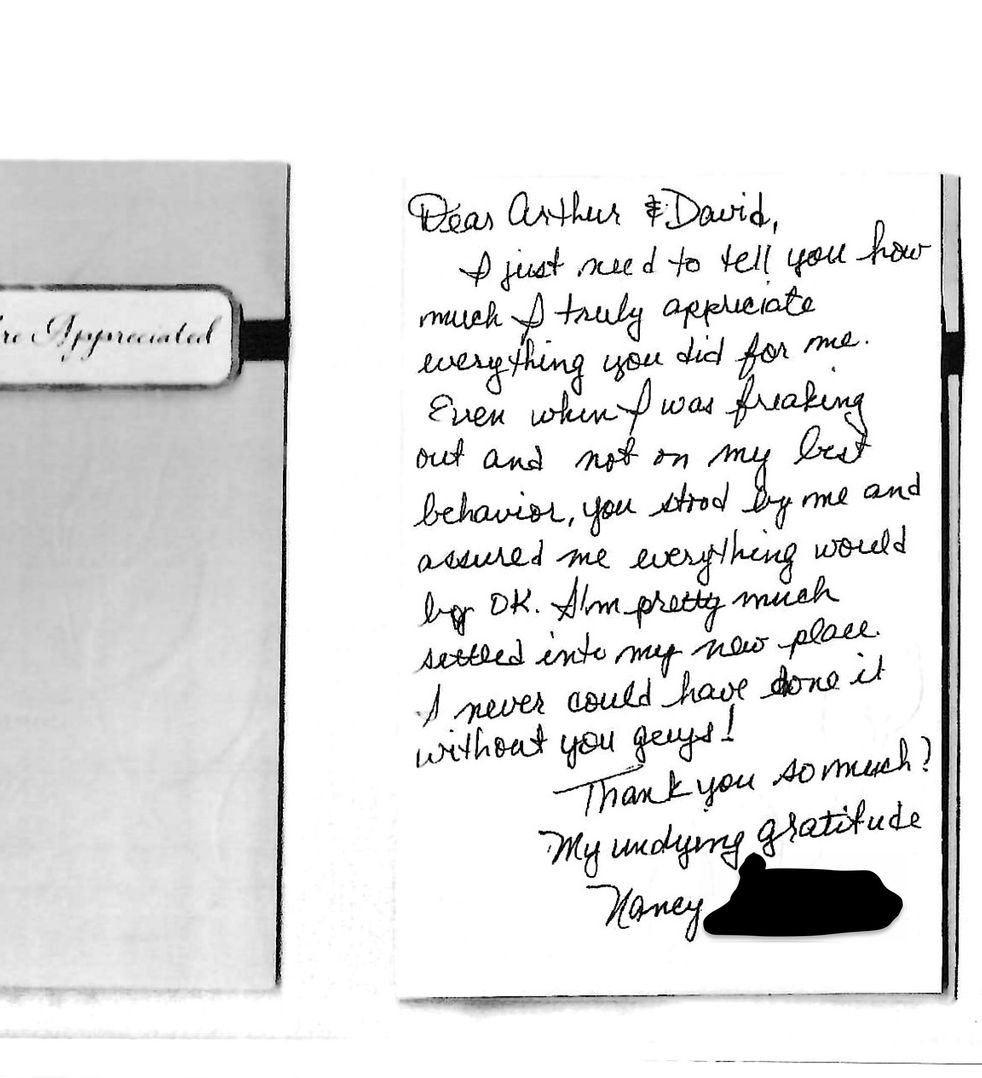 re Appreciated
Dear Arthur & David,
I just need to tell you how
much I truly appreciate
everything you did for me.
Even when I was freaking
out and not on my best
behavior, you stood by me and
assured me everything would
by OK. I'm pretty much
settled into my new place.
I never could have done it
without you guys!
Thank you so much!
My undying gratitude
Nancy